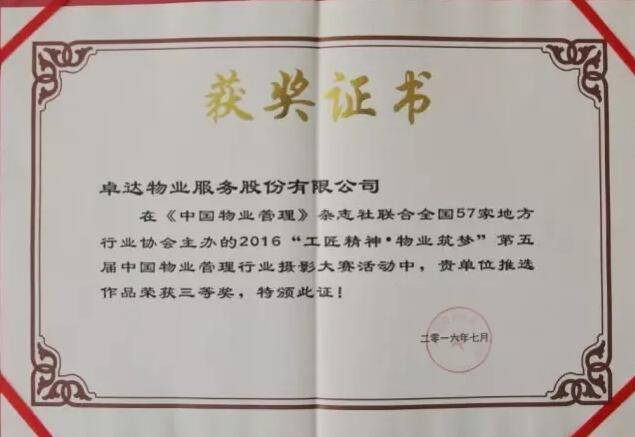 获奖证书
卓达物业服务股份有限公司
在《中国物业管理》杂志社联合全国57家地方
行业协会主办的2016“工匠精神·物业筑梦”第五
届中国物业管理行业摄影大赛活动中，贵单位推选
作品荣获三等奖，特颁此证！
二零一六年七月